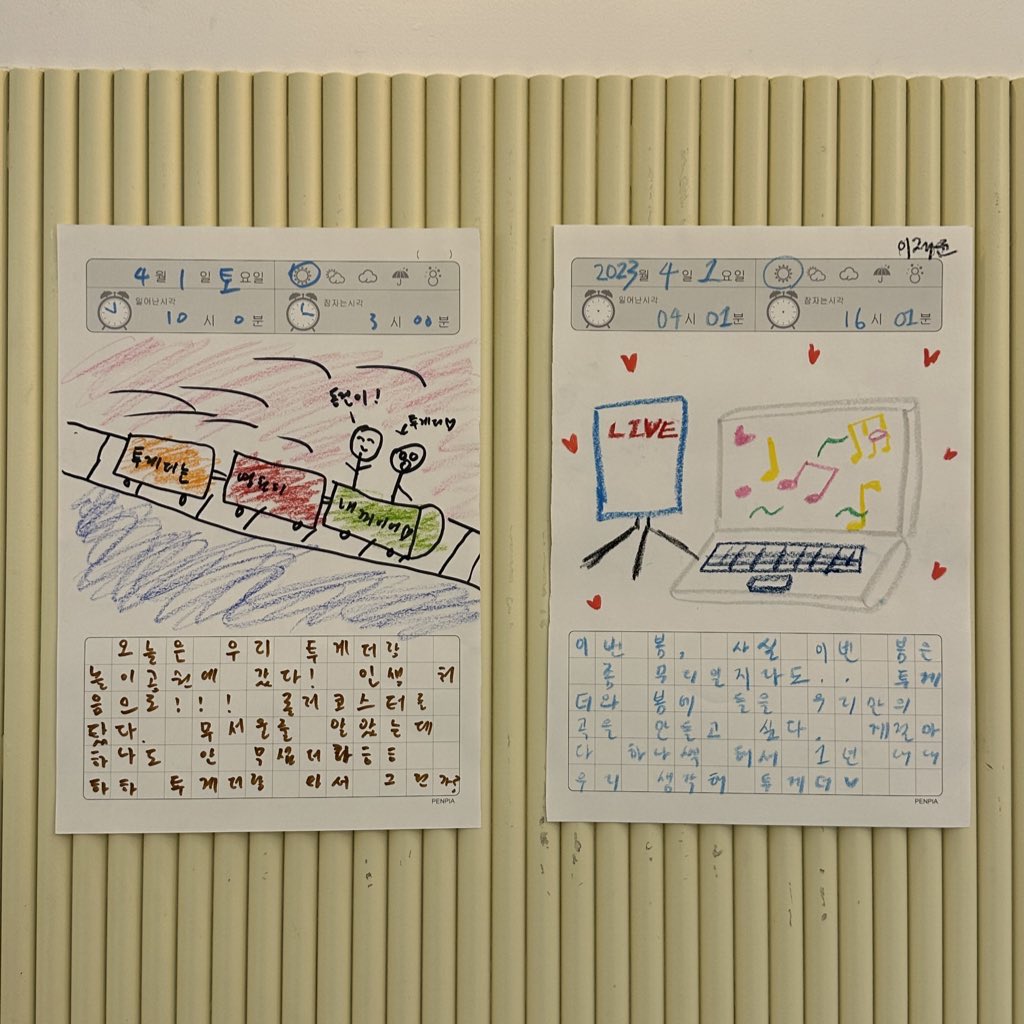 4월 1일 토요일
일어난시각
10시 0분
잠자는시각
3시 00분
동건이!
투게더
투게더는
내꺼이야
오늘은 우리 투게더랑
놀이공원에 갔다! 인생 처
음으로!!! 롤러코스터를
탔다. 무서운줄 알았는데
하나도 안 무섭더라 ㅎㅎㅎ
하하 투게더랑 와서 그런
PENPIA
2023월 4일 1요일
일어난시각
04시 01분
잠자는시각
16시 01분
LIVE
이번 봄, 사실 이번 봄은
좀 무디일지라도.. 투게
더와 봄에 들을 우리만의
곡을 만들고 싶다. 계절마
다 하나씩 해서 1년 내내
우리 생각해 투게더♥
PENPIA